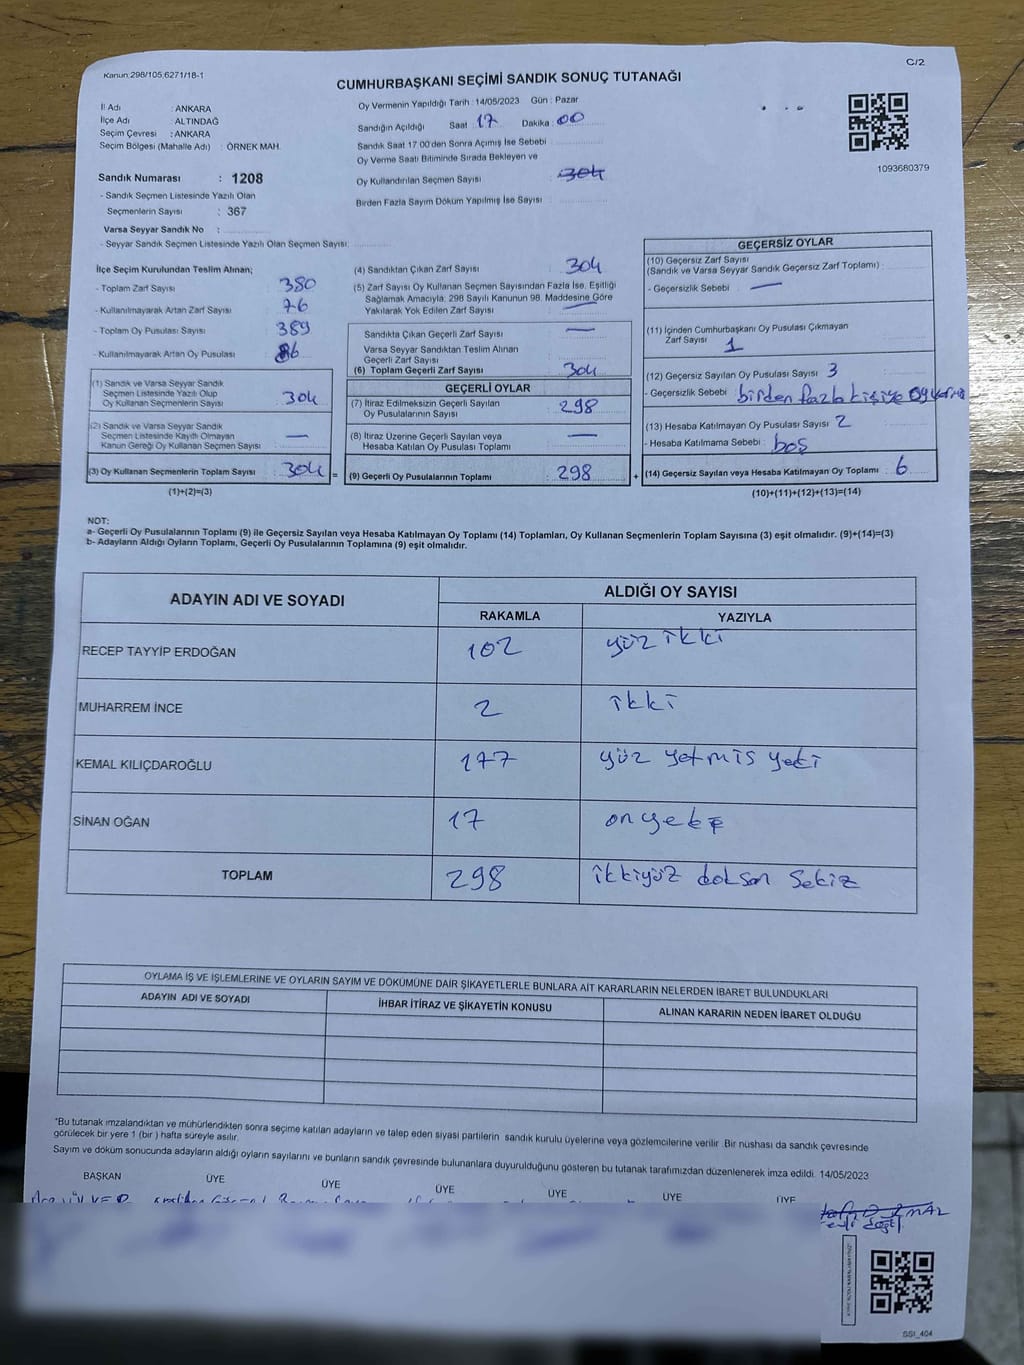 Kanun.298/105,6271/18-1
C/2
CUMHURBAŞKANI SEÇİMİ SANDIK SONUÇ TUTANAĞI
İl Adı : ANKARA
İlçe Adı : ALTINDAĞ
Seçim Çevresi : ANKARA
Seçim Bölgesi (Mahalle Adı) : ÖRNEK MAH.
Sandık Numarası : 1208
- Sandık Seçmen Listesinde Yazılı Olan
Seçmenlerin Sayısı : 367
Varsa Seyyar Sandık No :
- Seyyar Sandık Seçmen Listesinde Yazılı Olan Seçmen Sayısı:
Oy Vermenin Yapıldığı Tarih : 14/05/2023 Gün : Pazar
Sandığın Açıldığı Saat : 17 Dakika : 00
Sandık Saat 17 00'den Sonra Açımış İse Sebebi :
Oy Verme Saati Bitiminde Sırada Bekleyen ve
Oy Kullandırılan Seçmen Sayısı : 304
Birden Fazla Sayım Döküm Yapılmış İse Sayısı :
1093680379
İlçe Seçim Kurulundan Teslim Alınan;
- Toplam Zarf Sayısı : 380
- Kullanılmayarak Artan Zarf Sayısı : 76
- Toplam Oy Pusulası Sayısı : 389
- Kullanılmayarak Artan Oy Pusulası : 86
(1) Sandık ve Varsa Seyyar Sandık
Seçmen Listesinde Yazılı Olup
Oy Kullanan Seçmenlerin Sayısı : 304
(2) Sandık ve Varsa Seyyar Sandık
Seçmen Listesinde Kayıtlı Olmayan
Kanun Gereği Oy Kullanan Seçmen Sayısı : —
(3) Oy Kullanan Seçmenlerin Toplam Sayısı : 304 =
(1)+(2)=(3)
(4) Sandıktan Çıkan Zarf Sayısı : 304
(5) Zarf Sayısı Oy Kullanan Seçmen Sayısından Fazla İse, Eşitliği
Sağlamak Amacıyla; 298 Sayılı Kanunun 98. Maddesine Göre
Yakılarak Yok Edilen Zarf Sayısı : —
Sandıkta Çıkan Geçerli Zarf Sayısı : —
Varsa Seyyar Sandıktan Teslim Alınan
Geçerli Zarf Sayısı :
(6) Toplam Geçerli Zarf Sayısı : 304
GEÇERLİ OYLAR
(7) İtiraz Edilmeksizin Geçerli Sayılan
Oy Pusulalarının Sayısı : 298
(8) İtiraz Üzerine Geçerli Sayılan veya
Hesaba Katılan Oy Pusulası Toplamı : —
(9) Geçerli Oy Pusulalarının Toplamı : 298 +
GEÇERSİZ OYLAR
(10) Geçersiz Zarf Sayısı
(Sandık ve Varsa Seyyar Sandık Geçersiz Zarf Toplamı) :
- Geçersizlik Sebebi : —
(11) İçinden Cumhurbaşkanı Oy Pusulası Çıkmayan
Zarf Sayısı : 1
(12) Geçersiz Sayılan Oy Pusulası Sayısı : 3
- Geçersizlik Sebebi : birden fazla kişiye oy verme
(13) Hesaba Katılmayan Oy Pusulası Sayısı : 2
- Hesaba Katılmama Sebebi : boş
(14) Geçersiz Sayılan veya Hesaba Katılmayan Oy Toplamı : 6
(10)+(11)+(12)+(13)=(14)
NOT:
a- Geçerli Oy Pusulalarının Toplamı (9) ile Geçersiz Sayılan veya Hesaba Katılmayan Oy Toplamı (14) Toplamları, Oy Kullanan Seçmenlerin Toplam Sayısına (3) eşit olmalıdır. (9)+(14)=(3)
b- Adayların Aldığı Oyların Toplamı, Geçerli Oy Pusulalarının Toplamına (9) eşit olmalıdır.
ADAYIN ADI VE SOYADI
ALDIĞI OY SAYISI
RAKAMLA YAZIYLA
RECEP TAYYİP ERDOĞAN 102 yüz ikki
MUHARREM İNCE 2 ikki
KEMAL KILIÇDAROĞLU 177 yüz yetmis yedi
SİNAN OĞAN 17 onyedi
TOPLAM 298 ikkiyüz doksan sekiz
OYLAMA İŞ VE İŞLEMLERİNE VE OYLARIN SAYIM VE DÖKÜMÜNE DAİR ŞİKAYETLERLE BUNLARA AİT KARARLARIN NELERDEN İBARET BULUNDUKLARI
ADAYIN ADI VE SOYADI
İHBAR İTİRAZ VE ŞİKAYETİN KONUSU
ALINAN KARARIN NEDEN İBARET OLDUĞU
*Bu tutanak imzalandıktan ve mühürlendikten sonra seçime katılan adayların ve talep eden siyasi partilerin sandık kurulu üyelerine veya gözlemcilerine verilir .Bir nushası da sandık çevresinde
görülecek bir yere 1 (bir ) hafta süreyle asılır.
Sayım ve döküm sonucunda adayların aldığı oyların sayılarını ve bunların sandık çevresinde bulunanlara duyurulduğunu gösteren bu tutanak tarafımızdan düzenlenerek imza edildi. 14/05/2023
BAŞKAN ÜYE ÜYE ÜYE ÜYE ÜYE ÜYE
SSI_404